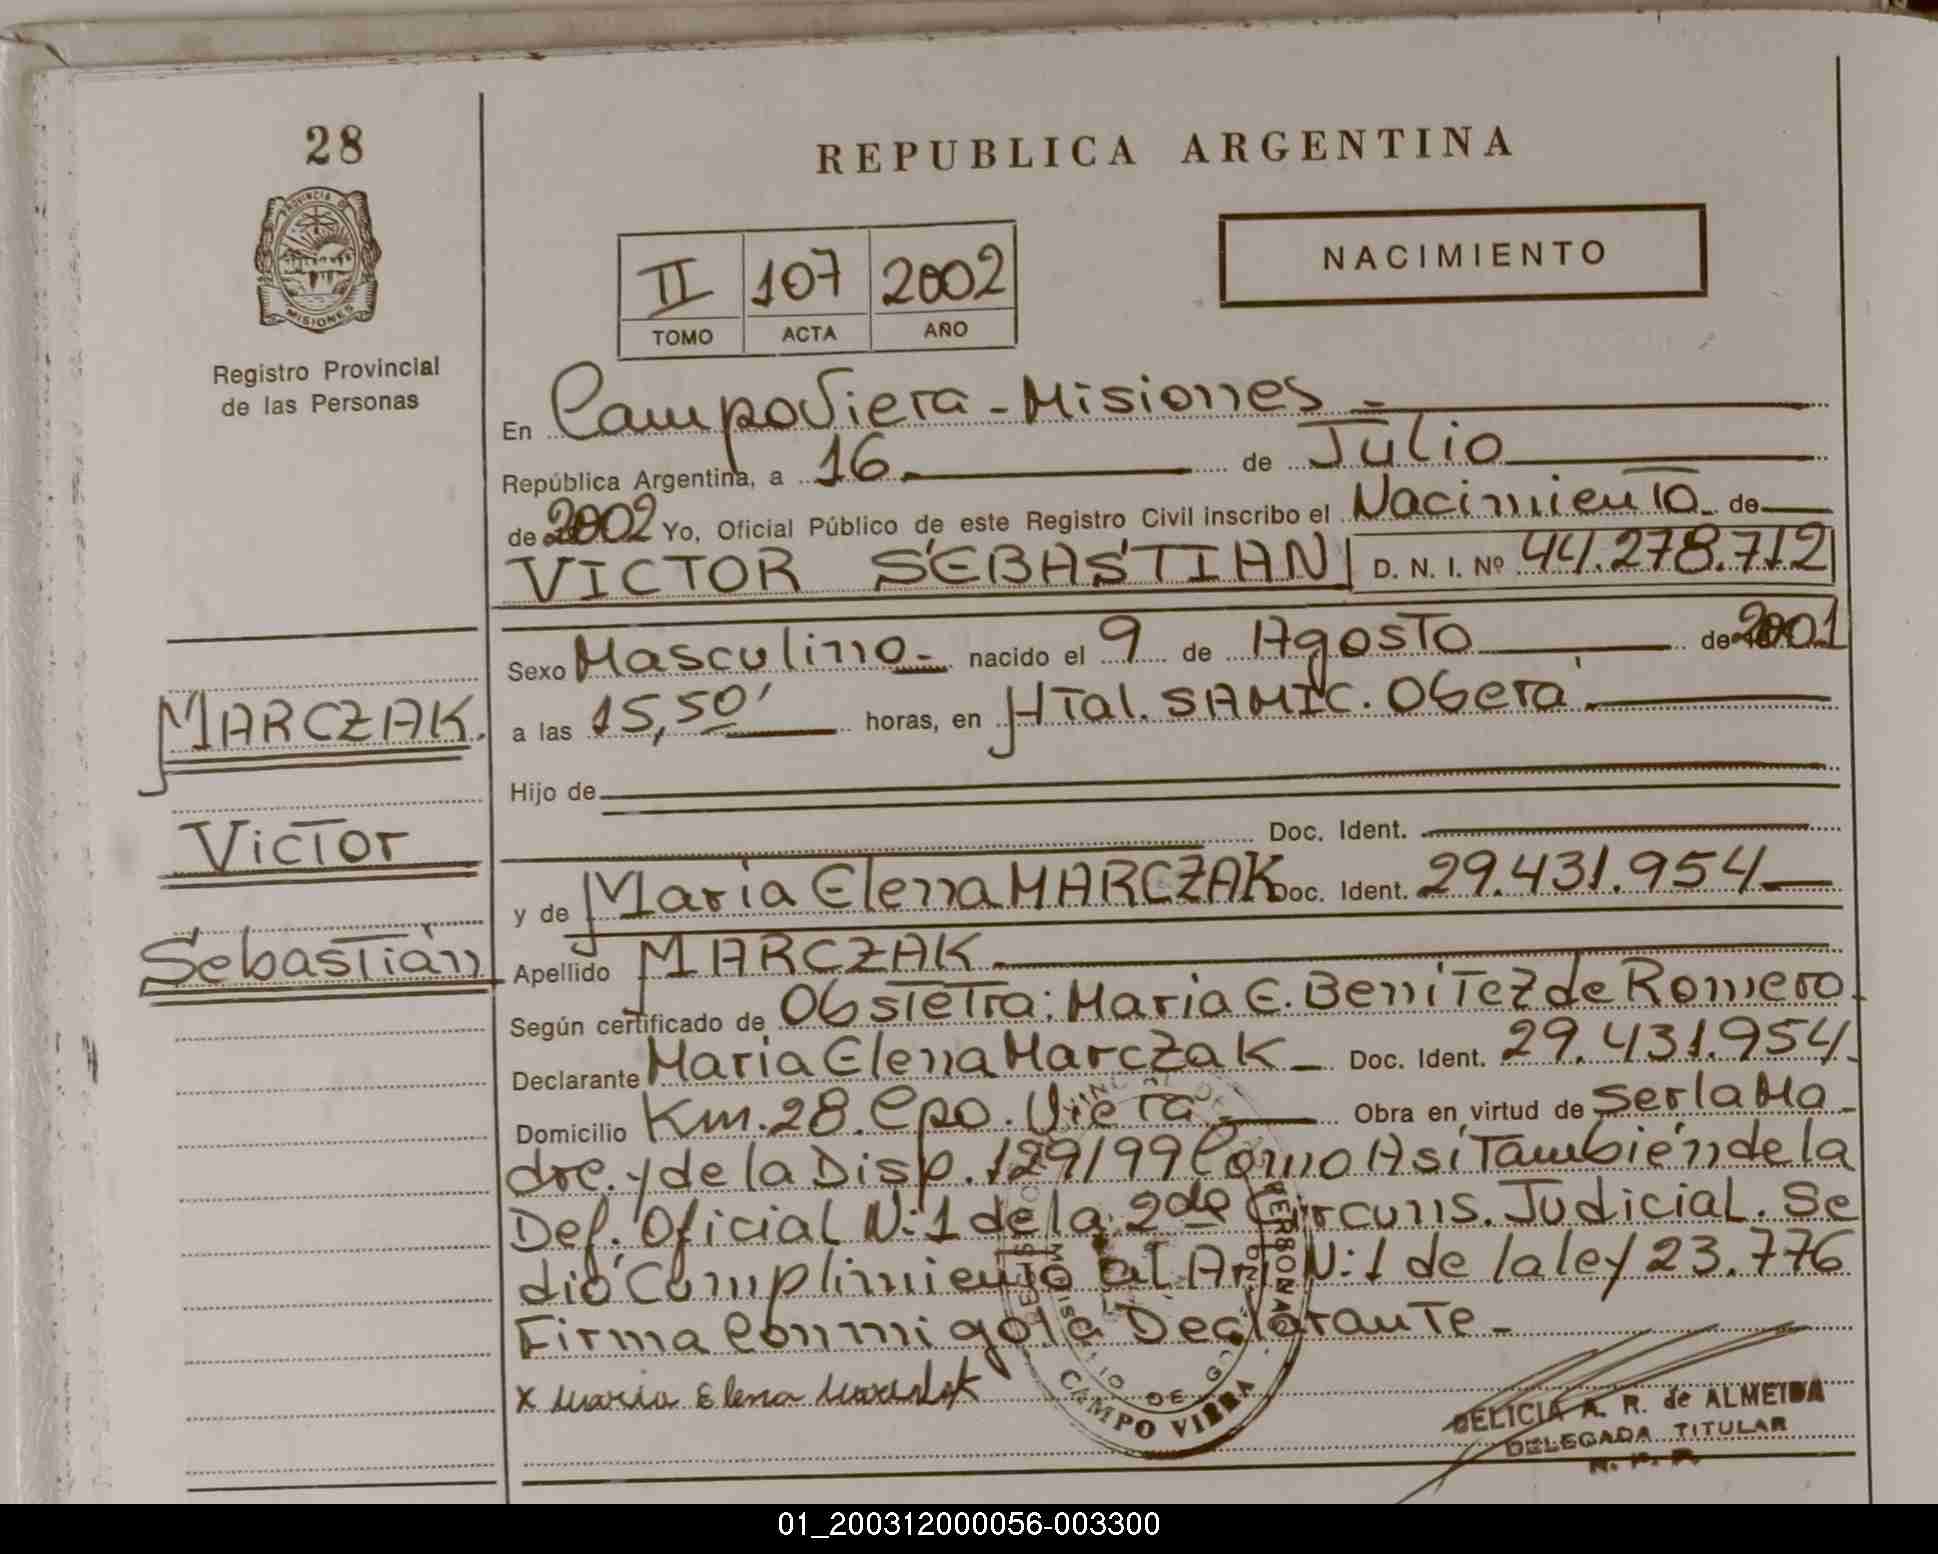 28
REPUBLICA ARGENTINA
PROVINCIA DE
MISIONES
Registro Provincial
de las Personas
II 107 2002
TOMO ACTA AÑO
NACIMIENTO
En Campo Viera - Misiones -
República Argentina, a 16 de Julio
de 2002 Yo, Oficial Público de este Registro Civil inscribo el Nacimiento de
VICTOR SEBASTIAN D. N. I. Nº 44.278.712
Sexo Masculino - nacido el 9 de Agosto de 2001
a las 15,50' horas, en Htal. SAMIC. Oberá
Hijo de
Doc. Ident.
y de Maria Elena MARCZAK Doc. Ident. 29.431.954
Apellido MARCZAK
Según certificado de Obstetra: Maria E. Benitez de Romero.
Declarante Maria Elena Marczak - Doc. Ident. 29.431.954.
Domicilio Km. 28. Cpo. Viera Obra en virtud de ser la Ma-
dre. y de la Disp. 129/99 Como Así También de la
Def. Oficial N:1 de la 2da Circuns. Judicial. Se
dió Cumplimiento al Art N:1 de la ley 23.776
Firma Conmigo la Declarante -
x Maria Elena Marczak
MARCZAK.
Victor
Sebastián
CAMPO VIERA
DELICIA A. R. de ALMEIDA
DELEGADA TITULAR
R. P. P.
01_200312000056-003300